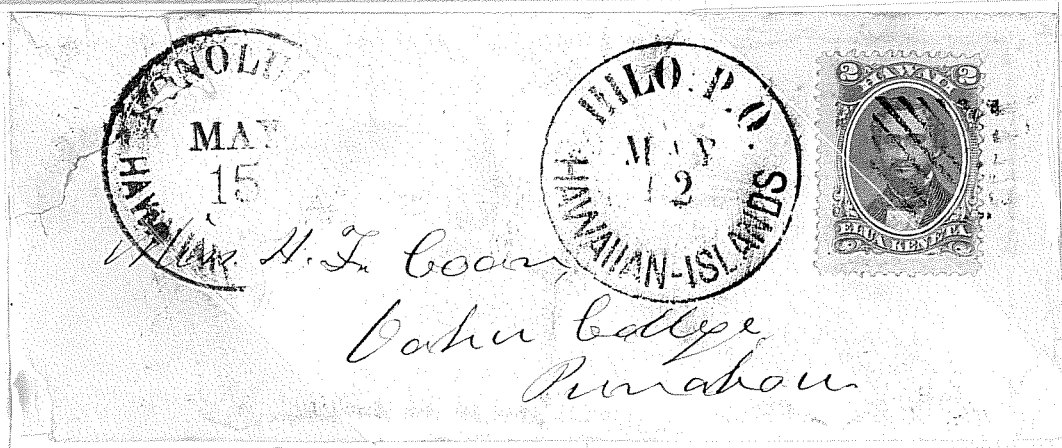 HONOLU
MAY
15
HAWAIIAN
HILO. P.O.
MAY
12
HAWAIIAN-ISLANDS
2 HAWAII 2
ELUA KENETA
H. F. Coan,
Oahu College
Punahou